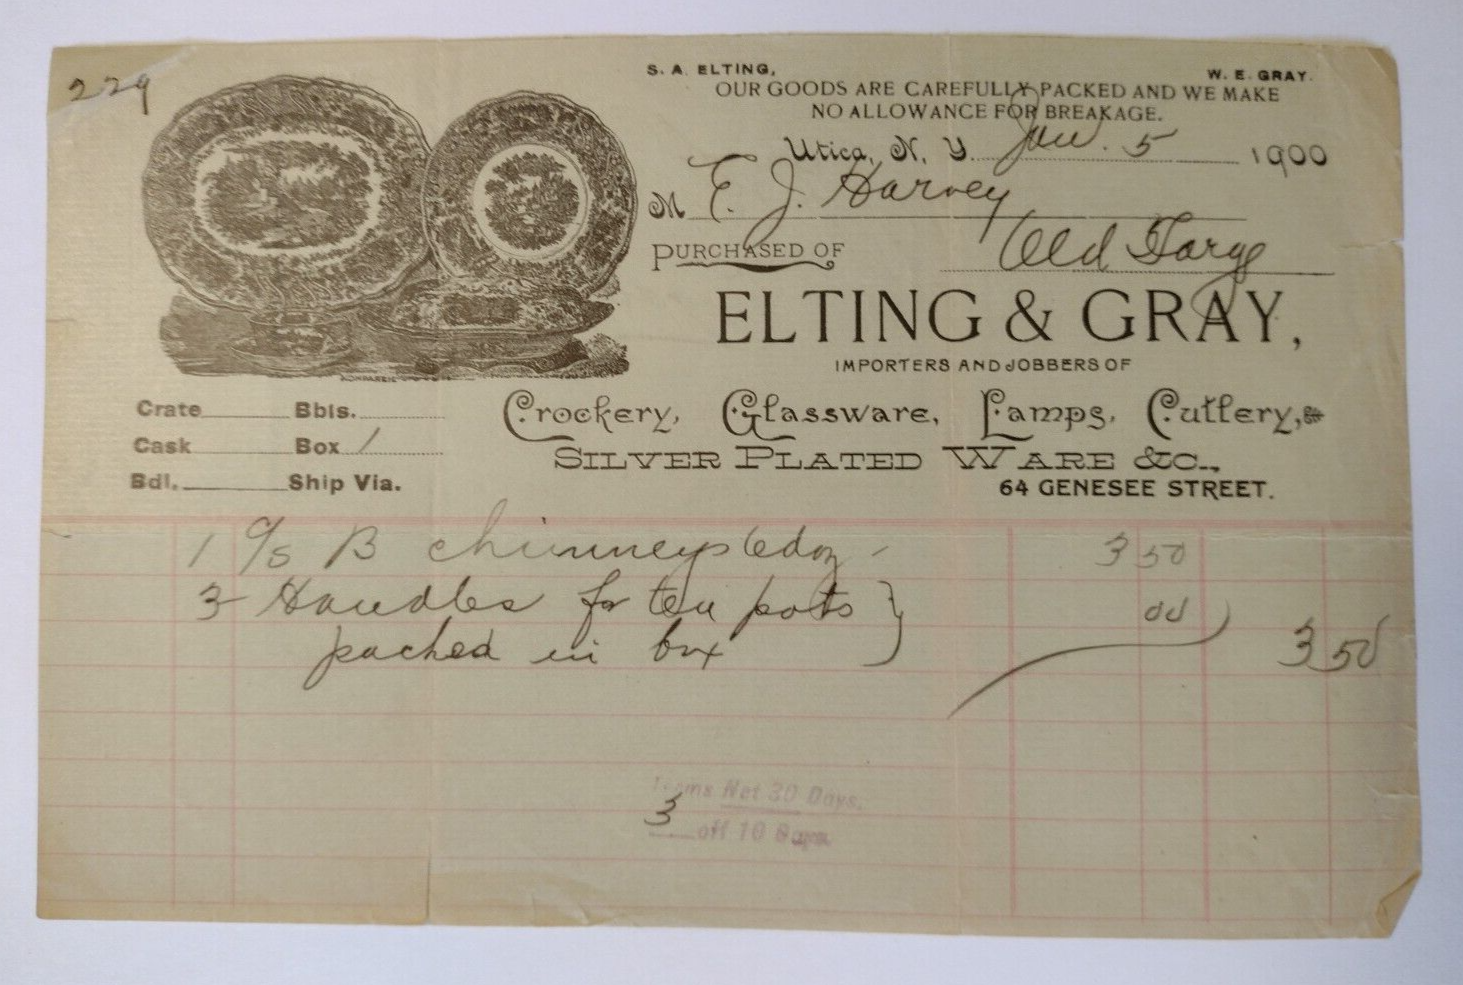 229
S. A. ELTING, W. E. GRAY.
OUR GOODS ARE CAREFULLY PACKED AND WE MAKE
NO ALLOWANCE FOR BREAKAGE.
Utica, N. Y. Jan. 5 1900
M E. J. Harvey
PURCHASED OF Old Forge
ELTING & GRAY,
IMPORTERS AND JOBBERS OF
Crockery, Glassware, Lamps, Cutlery,
SILVER PLATED WARE &C.,
64 GENESEE STREET.
Crate Bbls.
Cask Box 1
Bdl. Ship Via.
1 c/s B chimneys 6doz - 3 50
3 Handles for tea pots 00
packed in box 3 50
Terms Net 30 Days.
3 off 10 Days